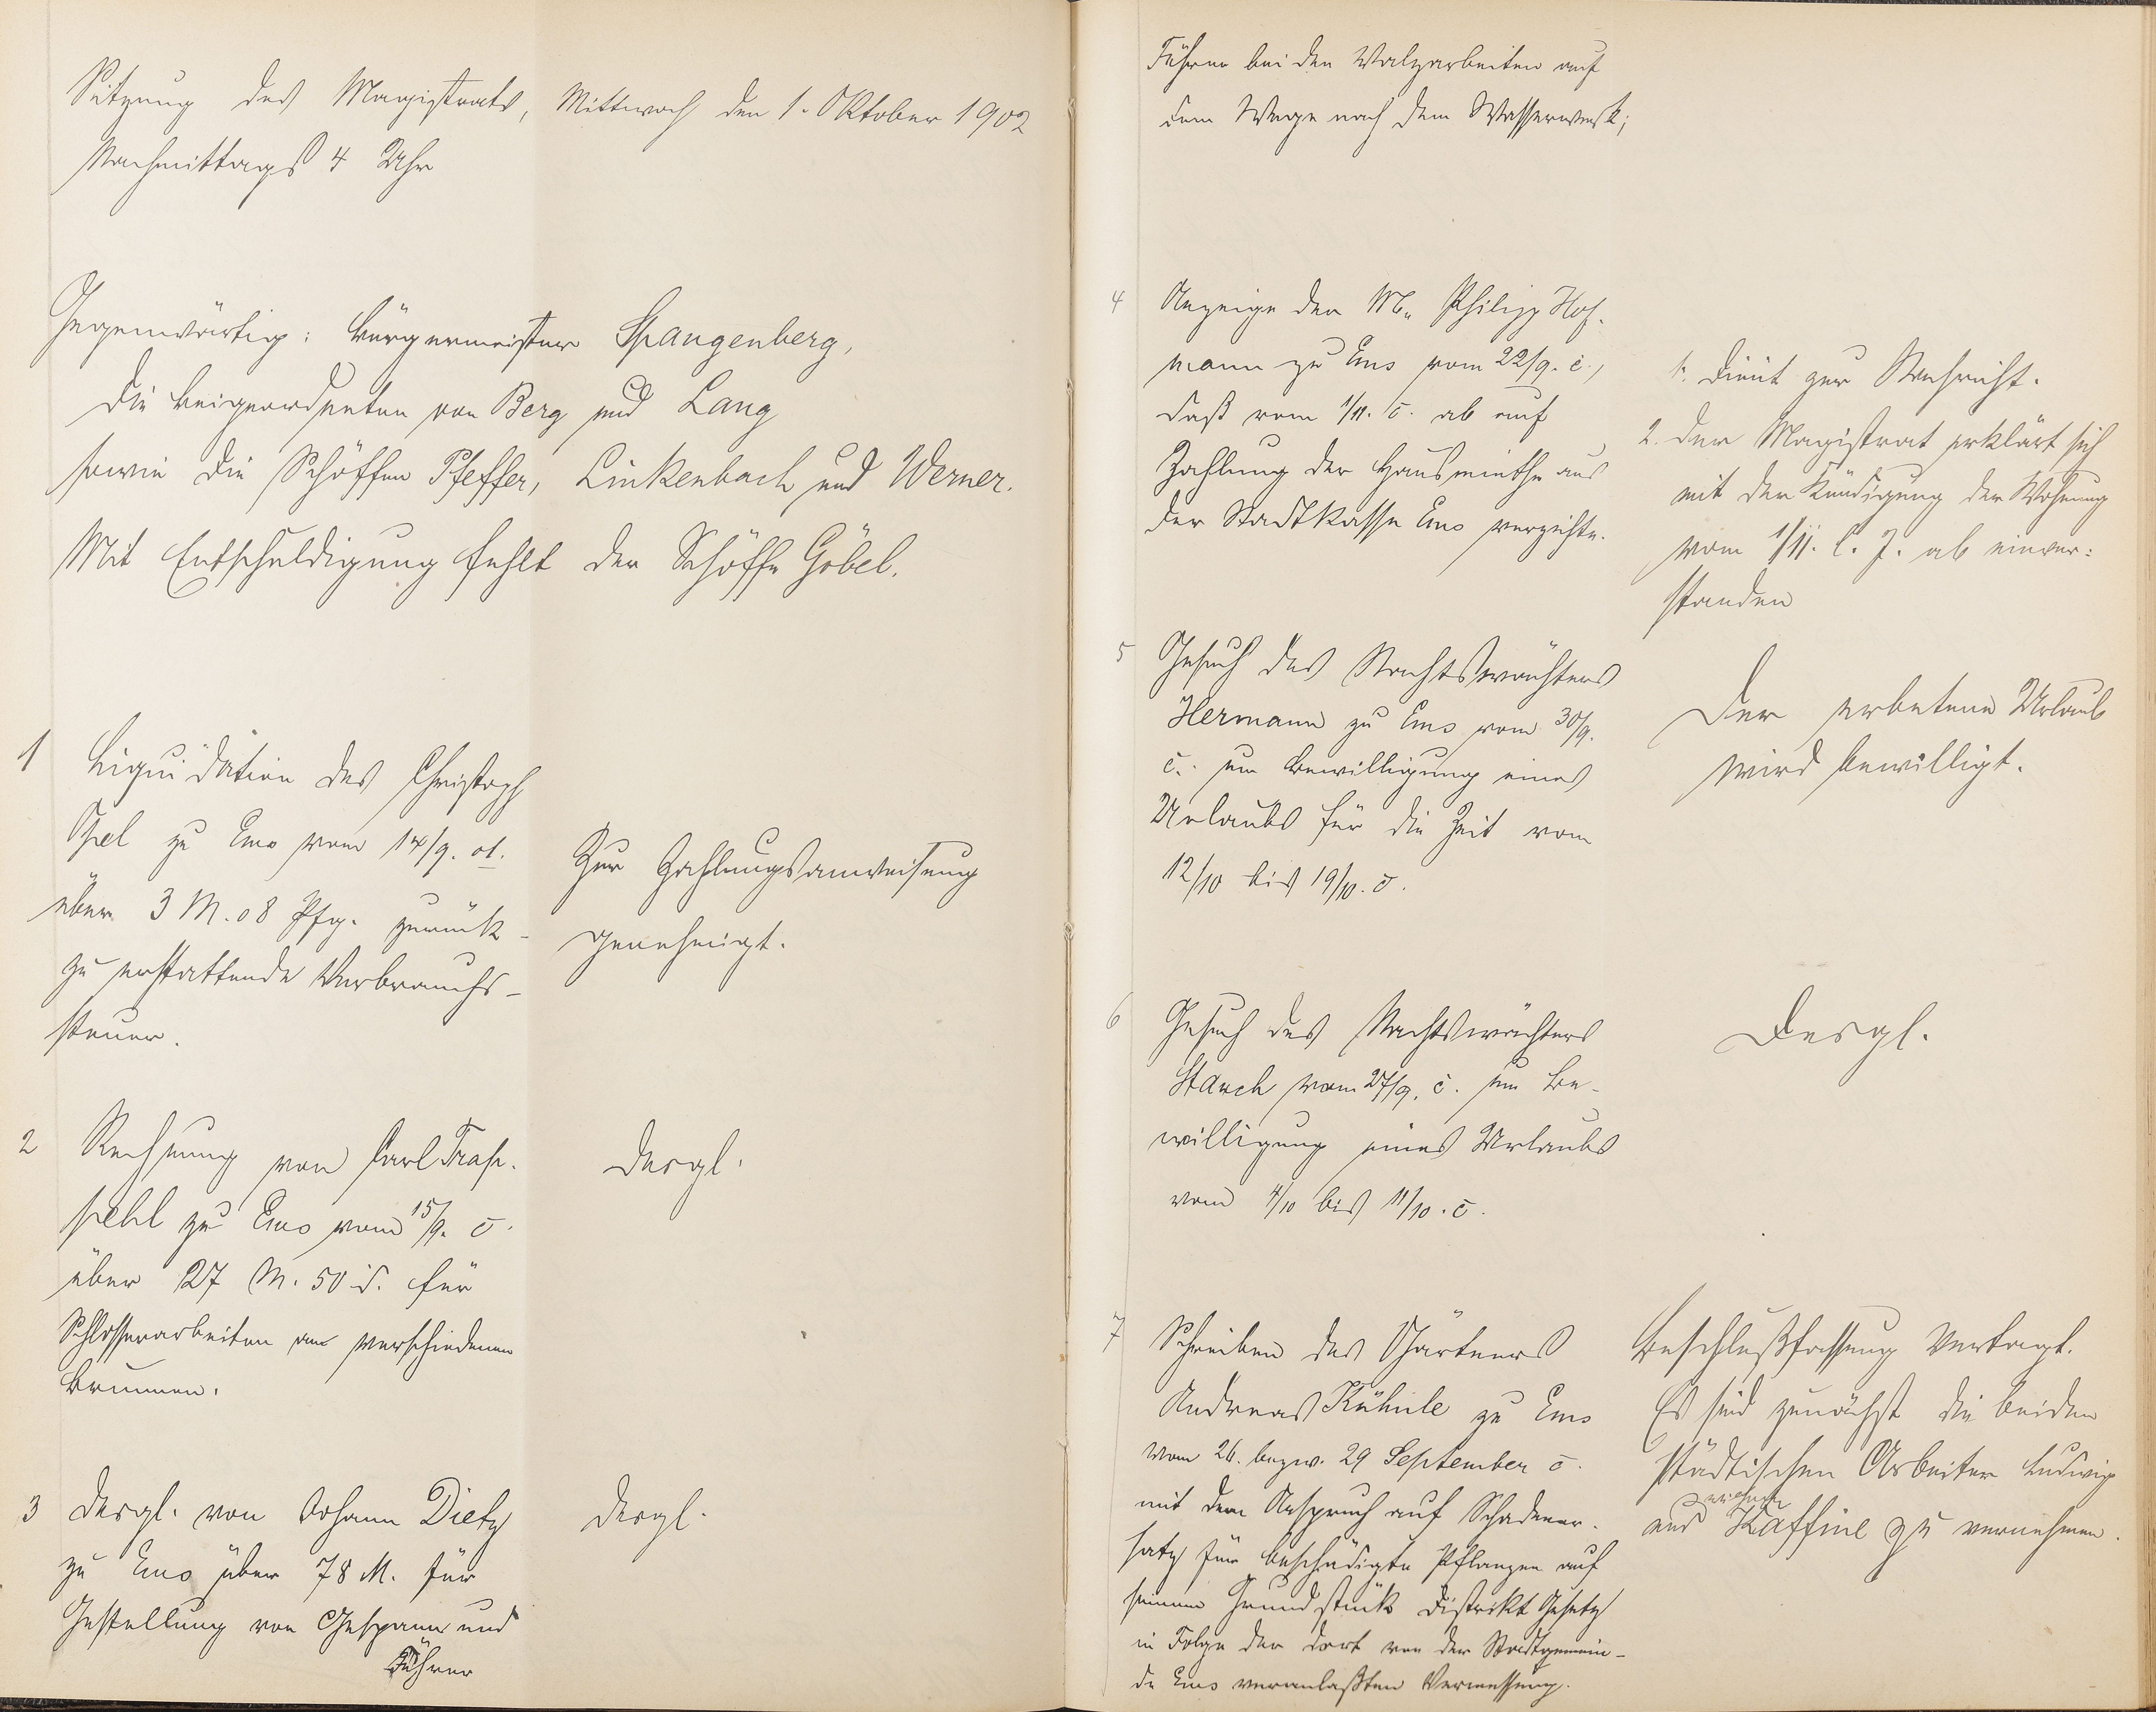 Sitzung des Magistrats, Mittwoch den 1. Oktober 1902
Nachmittags 4 Uhr
Gegenwärtig: Bürgermeister Spangenberg,
die Beigeordneten von Berg und Lang
sowie die Schöffen Pfeffer, Linkenbach und Werner.
Mit Entschuldigung fehlt der Schöffe Göbel.
1 Liquidation des Christoph
zu Ems vom 14/9. 01.
über 3 M. 08 Pfg. zurück-
zu erstattende Verbrauchs-
steuer.
Zur Zahlungsanweisung
genehmigt.
2 Rechnung von Carl
zu Ems vom 15/9. c.
über 27 M. 50 d. für
Schlosserarbeiten am verschiedenen
Brunnen.
desgl.
3 desgl. von Johann Dietz
zu Ems über 78 M. für
Gestellung von Gespann und
Führer
desgl.
Führer bei den Walzarbeiten auf
dem Wege nach dem Wasserwerk;
4 Anzeige der Philipp Hof-
mann zu Ems vom 22/9. c.,
daß vom 1/11. c. ab auf
Zahlung der Hausmiethe aus
der Stadtkasse Ems verzichte.
1. Dient zur Nachricht.
2. Der Magistrat erklärt sich
mit der Kündigung der Wohnung
vom 1/11. l. J. ab einver:
standen
5 Gesuch des Nachtswächters
Hermann zu Ems vom 30/9.
c. um Bewilligung eines
Urlaubs für die Zeit vom
12/10 bis 19/10. c.
Der erbetene Urlaub
wird bewilligt.
6 Gesuch des Nachtswächters
vom 27/9. c. um Be-
willigung eines Urlaubs
vom 4/10 bis 11/10. c.
Desgl.
7 Schreiben des Gärtners
Andreas Kühnle zu Ems
vom 26. bezw. 29 September c.
mit dem Anspruch auf Schadener-
satz für beschädigte Pflanzen auf
seinem Grundstück Distrikt
in Folge der dort von der Stadtgemein-
de Ems veranlaßten Vermessung.
Beschlußfassung vertagt.
Es sind zunächst die beiden
städtischen Arbeiter Ludwig
und Kaffine zu vernehmen.